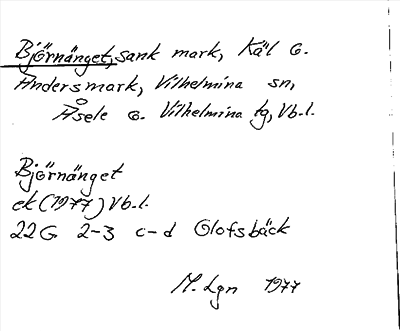 Björnänget, sank mark, Käl o.
Andersmark, Vilhelmina sn,
Åsele o. Vilhelmina tg, Vb.l.
Björnänget
ek (1977) Vb.l.
22G 2-3 c-d Olofsbäck
M. Lgn 1977